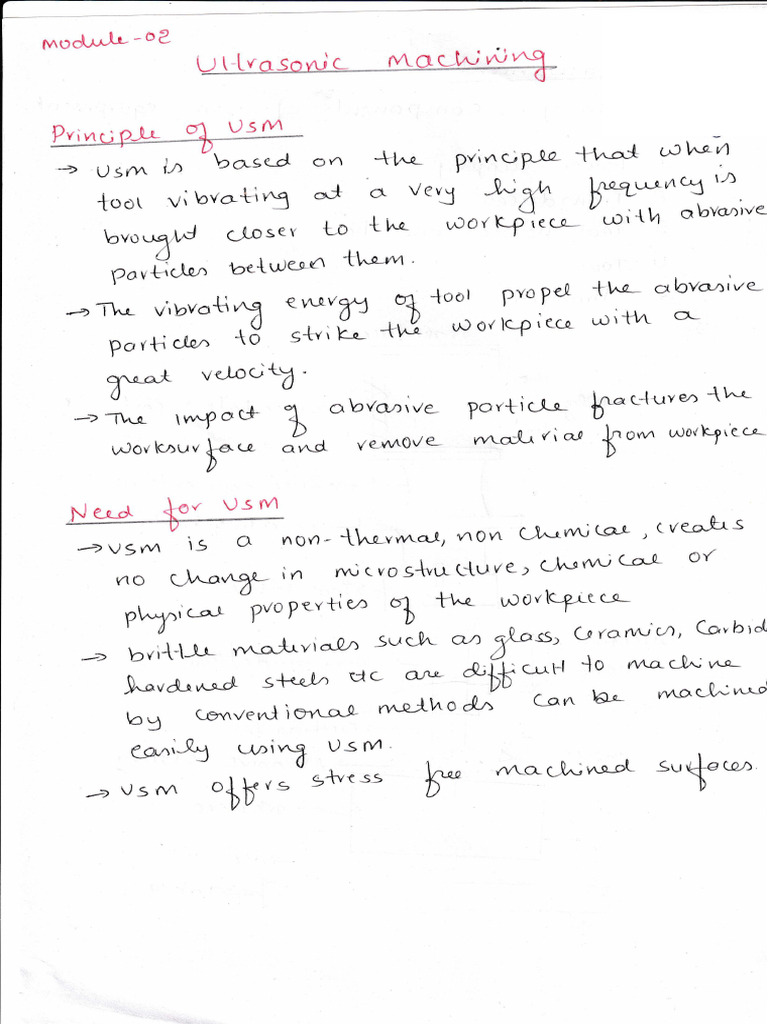 Module-02
Ultrasonic Machining
Principle of USM
→ USM is based on the principle that when
tool vibrating at a very high frequency is
brought closer to the workpiece with abrasive
particles between them.
→ The vibrating energy of tool propel the abrasive
particles to strike the workpiece with a
great velocity.
→ The impact of abrasive particle fractures the
worksurface and remove material from workpiece
Need for USM
→ USM is a non-thermal, non chemical, creates
no change in microstructure, chemical or
physical properties of the workpiece
→ brittle materials such as glass, ceramics, Carbid
hardened steels etc are difficult to machine
by conventional methods can be machined
easily using USM.
→ USM offers stress free machined surfaces.